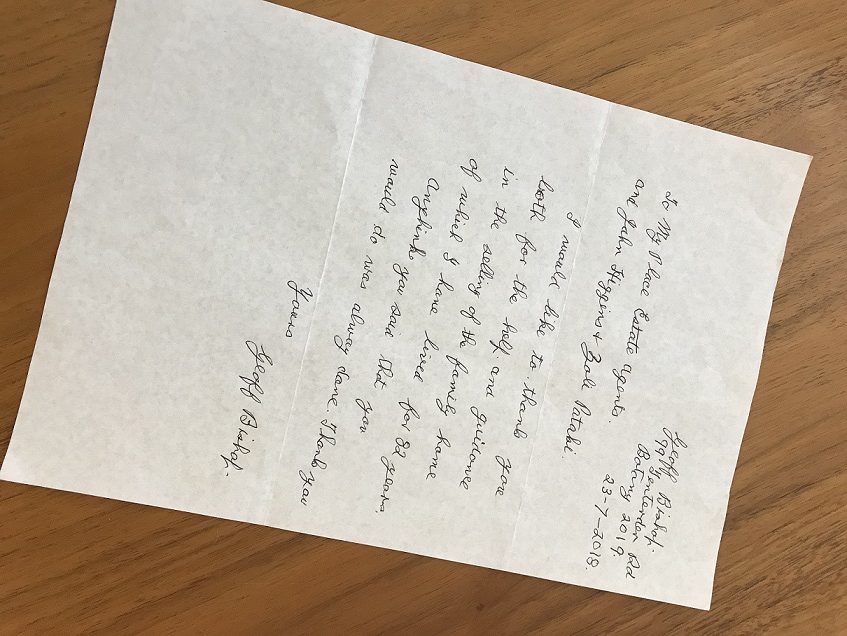 Geoff Bishop.
Tenterden Rd
Botany 2019.
23-7-2018.
To My Place Estate Agents.
John Higgins + Zoli Pataki.
I would like to thank you
both for the help and guidance
in the selling of the family home
of which I have lived for years.
Anythink you said that you
would do was alway done. Thank you
Yours
Geoff Bishop.